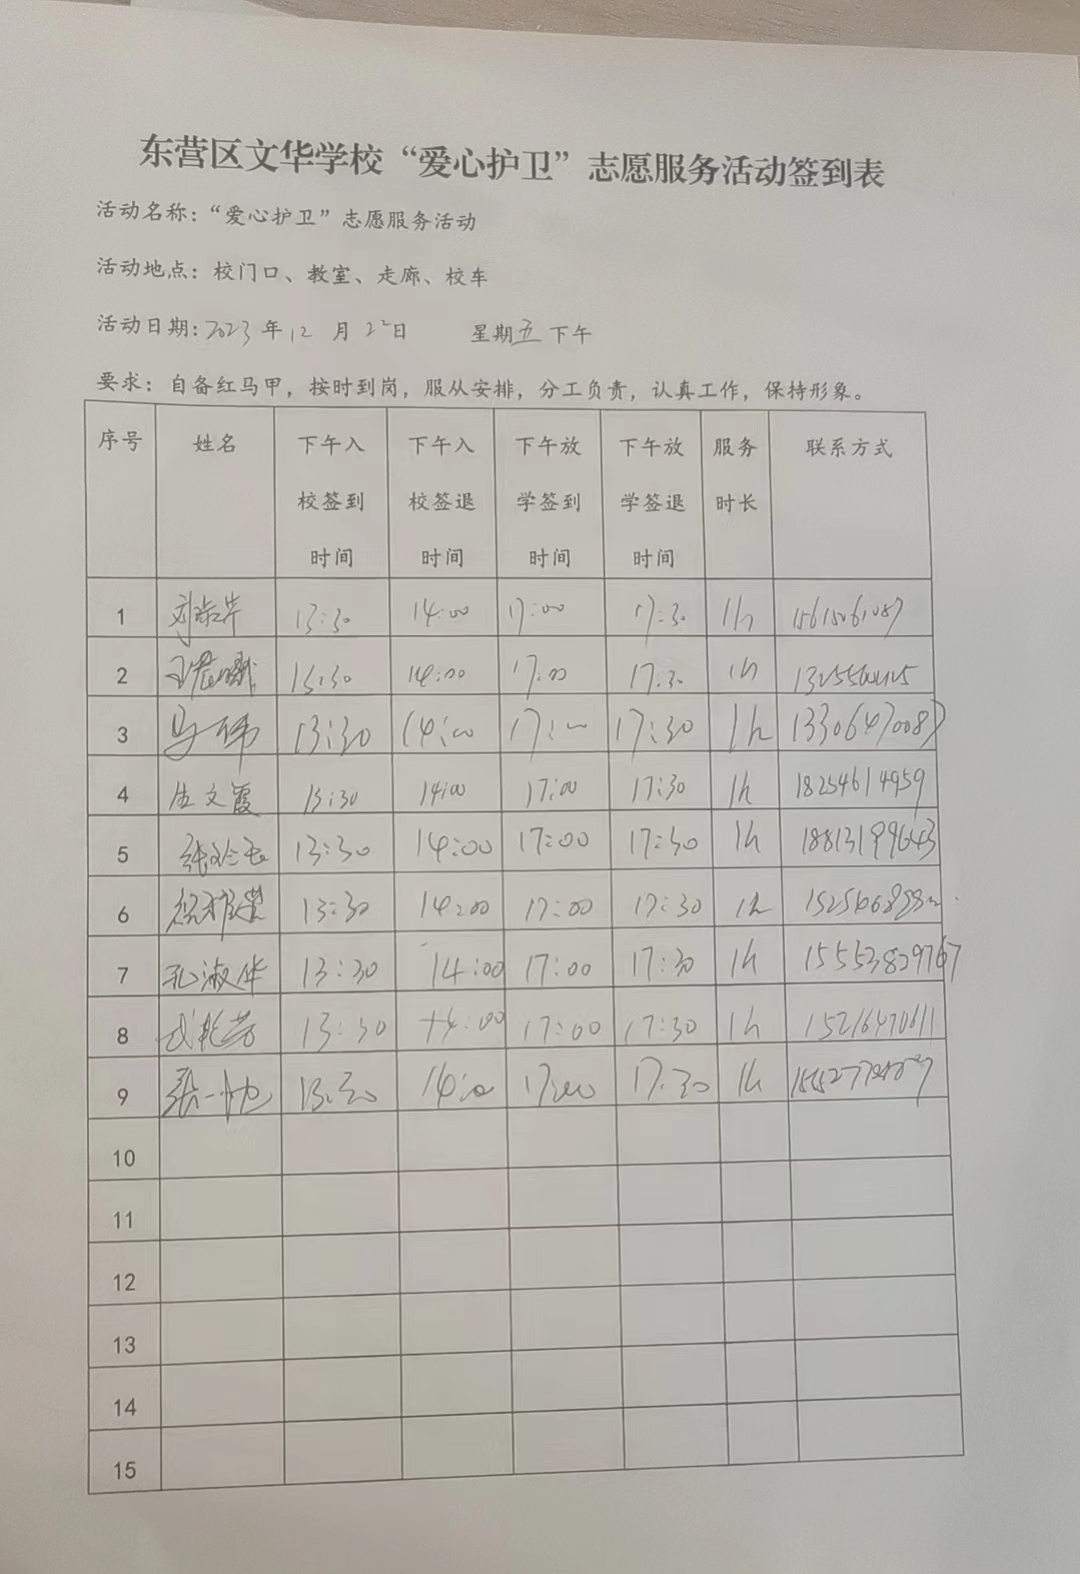 东营区文华学校“爱心护卫”志愿服务活动签到表
活动名称：“爱心护卫”志愿服务活动
活动地点：校门口、教室、走廊、校车
活动日期：2023年12月22日 星期五下午
要求：自备红马甲，按时到岗，服从安排，分工负责，认真工作，保持形象。
序号 姓名 下午入校签到时间 下午入校签退时间 下午放学签到时间 下午放学签退时间 服务时长 联系方式
1 13:30 14:00 17:00 17:30 1h 15615061087
2 13:30 14:00 17:00 17:30 1h
3 马伟 13:30 14:00 17:00 17:30 1h 13306470087
4 生文霞 13:30 14:00 17:00 17:30 1h 18254614959
5 13:30 14:00 17:00 17:30 1h
6 13:30 14:00 17:00 17:30 1h
7 孔淑华 13:30 14:00 17:00 17:30 1h 15553829767
8 武艳芳 13:30 14:00 17:00 17:30 1h 15216470611
9 13:30 14:00 17:00 17:30 1h
10
11
12
13
14
15